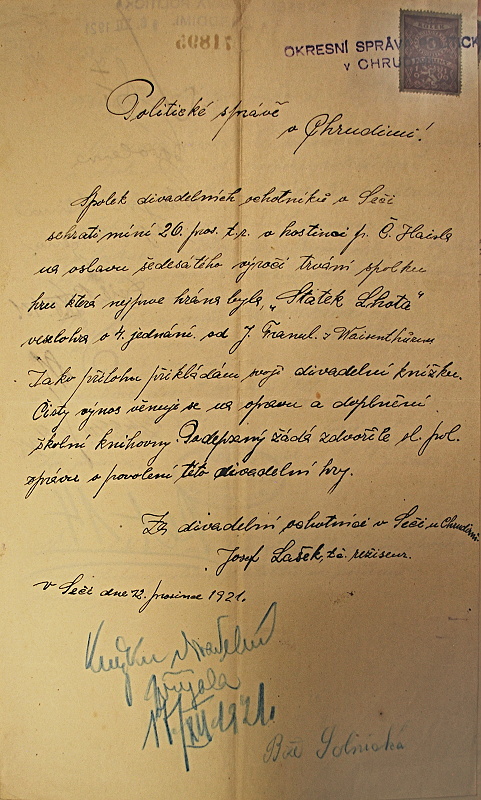 71895
OKRESNÍ SPRÁVA POLITICK
v CHRU
Politické správě
v Chrudimi!
Spolek divadelních ochotníků v Seči
sehrati míní 26. pros. t.r. v hostinci p. Č. Haisla
na oslavu šedesátého výročí trvání spolku
hru která nejprve hrána byla, „Statek Lhota"
veselohra o 4. jednání. od J. Franul. z Waisenthürmu
Jako přílohu přikládám svoji divadelní knížku.
Čistý výnos věnuje se na opravu a doplnění
školní knihovny. Podepsaný žádá zdvořile sl. pol.
správu o povolení této divadelní hry.
Za divadelní ochotníci v Seči u Chrudimi.
Josef Lašek, t.č. režiseur.
v Seči dne 12. prosince 1921.
Knížku divadelní
přijala
17/XII 1921.
Bož. Solnická